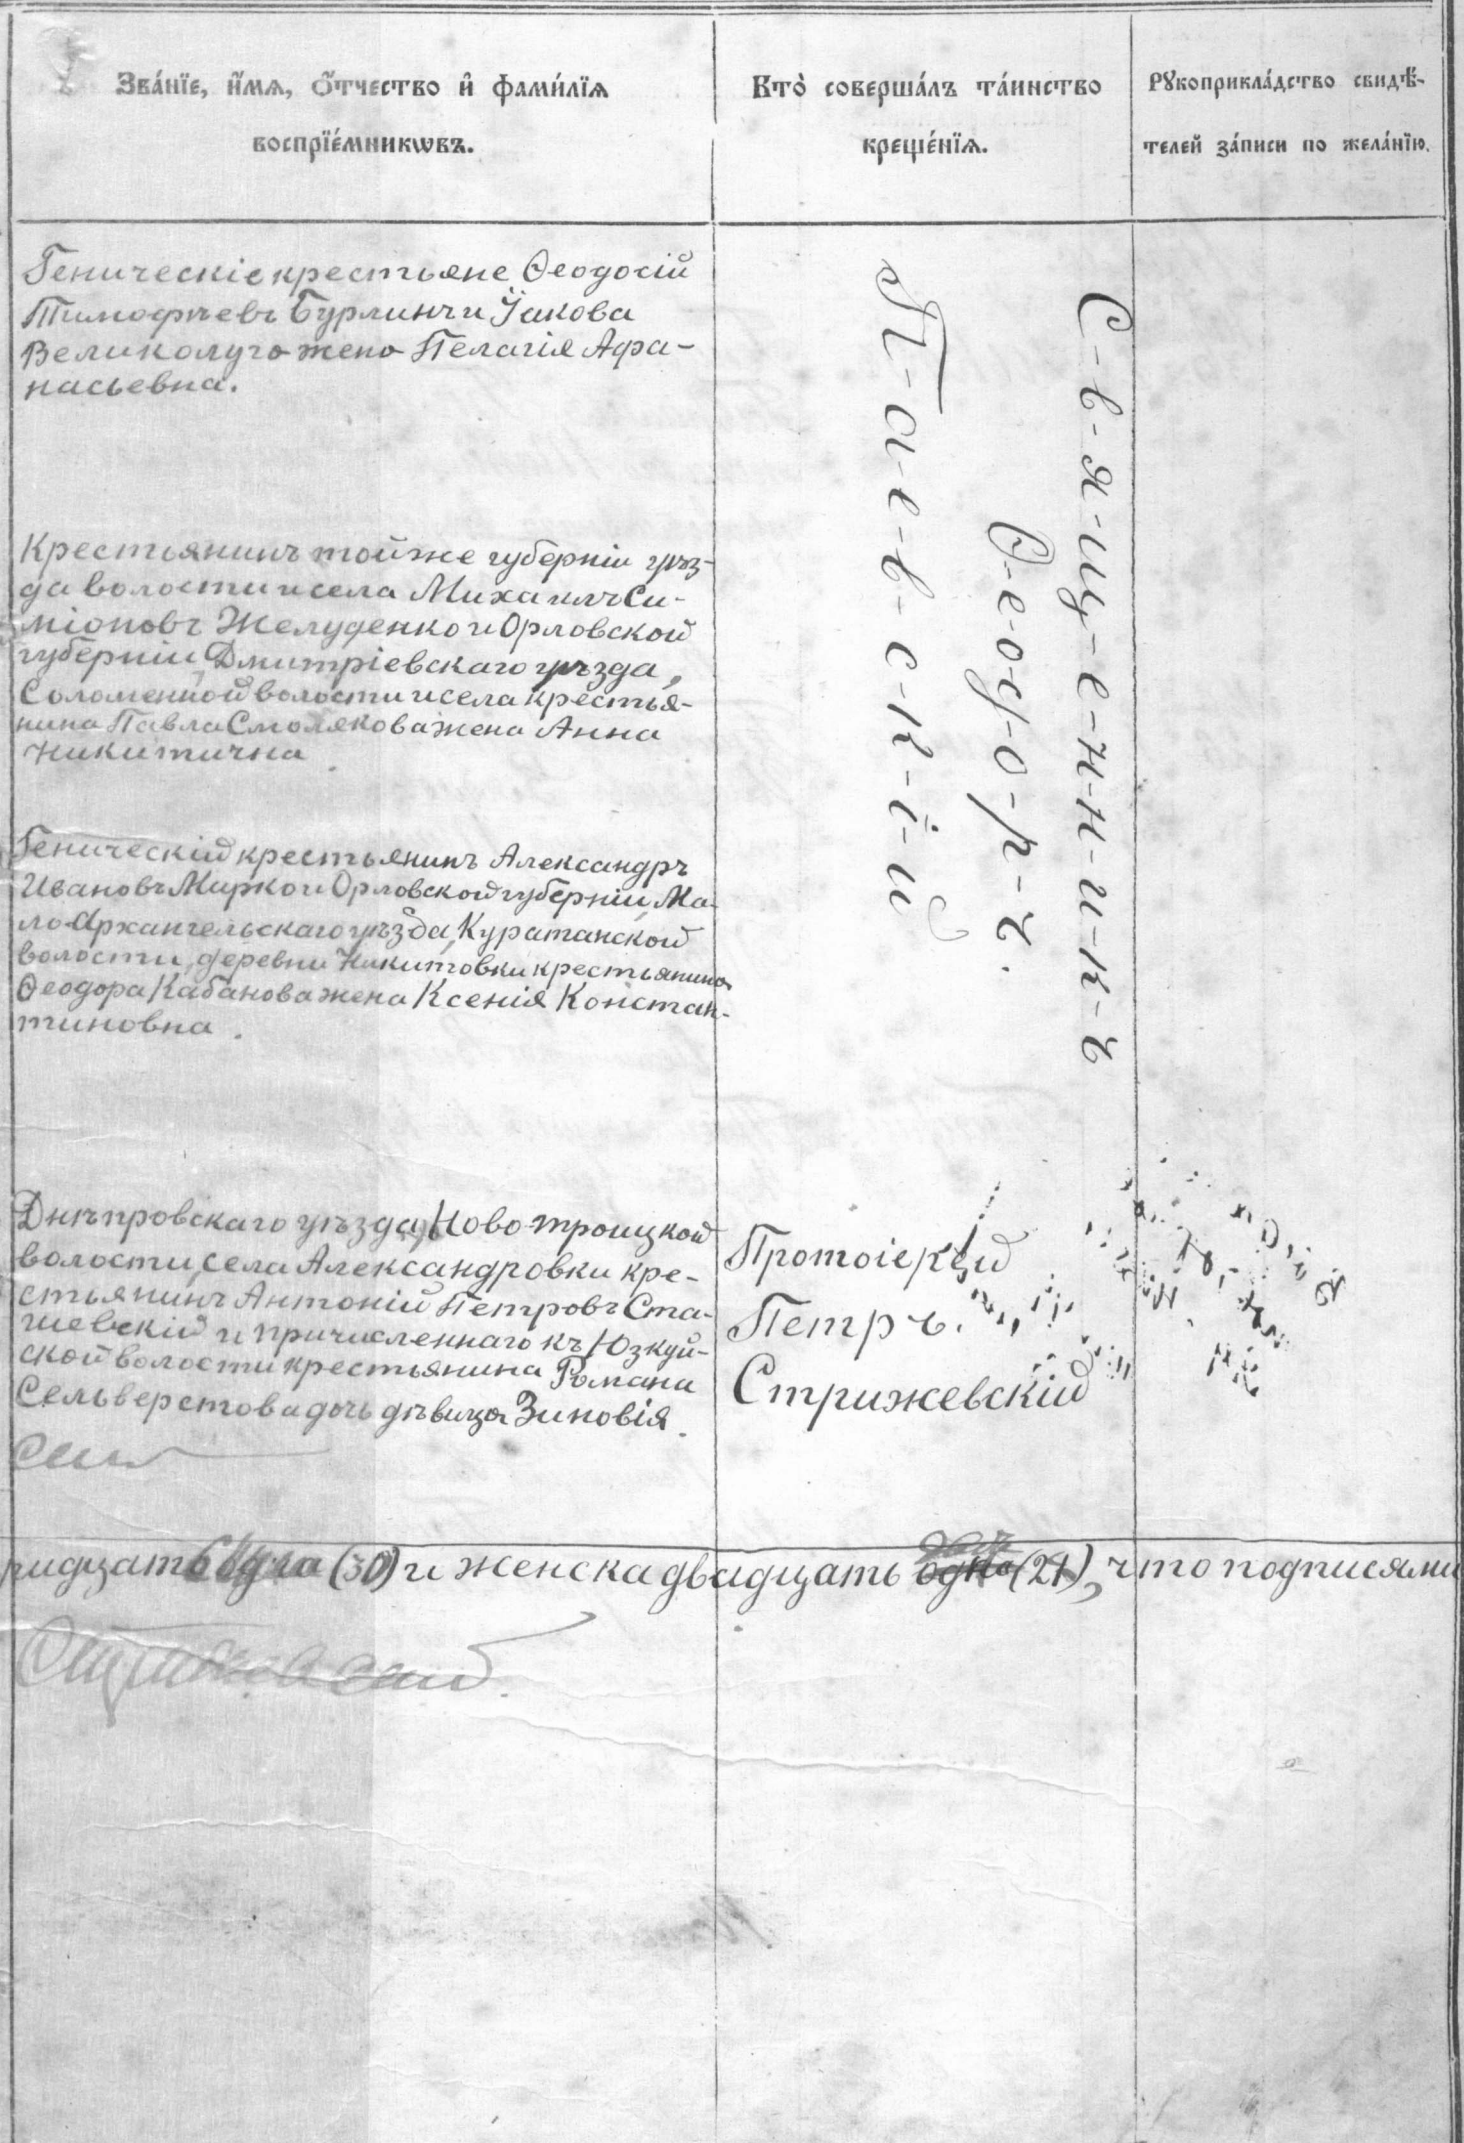 Зва́нїе, и҆́мѧ, ѻ҆́тчество и҆ фами́лїѧ
воспрїе́мникѡвъ.
Кто̀ соверша́лъ та́инство
креще́нїѧ.
Рꙋкоприкла́дство свидѣ́-
телей за́писи по жела́нїю.
Геническіе крестьяне Ѳеодосій
Тимофѣевъ Бурлинъ и Іакова
Великолуго жена Пелагія Афа-
насьевна.
Крестьянинъ тойже губерніи уѣз-
да волости и села Михаилъ Си-
міоновъ Желуденко и Орловской
губерніи, Дмитріевскаго уѣзда,
Соломенной волости и села крестья-
нина Павла Смолякова жена Анна
Никитична.
Геническій крестьянинъ Александръ
Ивановъ Мирко и Орловской губерніи, Ма-
ло-Архангельскаго уѣзда, Куратанской
волости, деревни Никитовки крестьянина
Ѳеодора Кабанова жена Ксенія Констан-
тиновна.
С-в-я-щ-е-н-н-и-к-ъ
Ѳ-е-о-д-о-р-ъ.
П-а-е-в-с-к-і-й
Днѣпровскаго уѣзда, Ново-троицкой
волости, села Александровки кре-
стьянинъ Антоній Петровъ Ста-
шевскій и причисленнаго къ Юзкуй-
ской волости крестьянина Романа
Сельверстова дочь дѣвица Зиновія.
Протоіерей
Петръ.
Стрижевскій
ридцать (30) и женска двадцать одна (21), что подписями